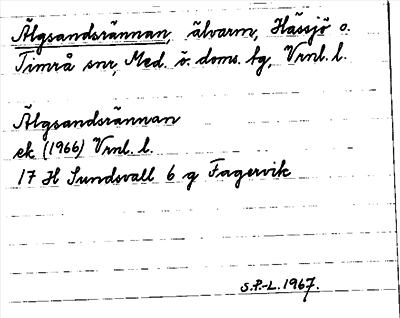 Älgsandsrännan, älvarm, Hässjö o.
Timrå snr, Med. ö. doms. tg, Vrnl. l.
Älgsandsrännan
ek (1966) Vrnl. l.
17 H Sundsvall 6 g Fagervik
S.P.-L. 1967.